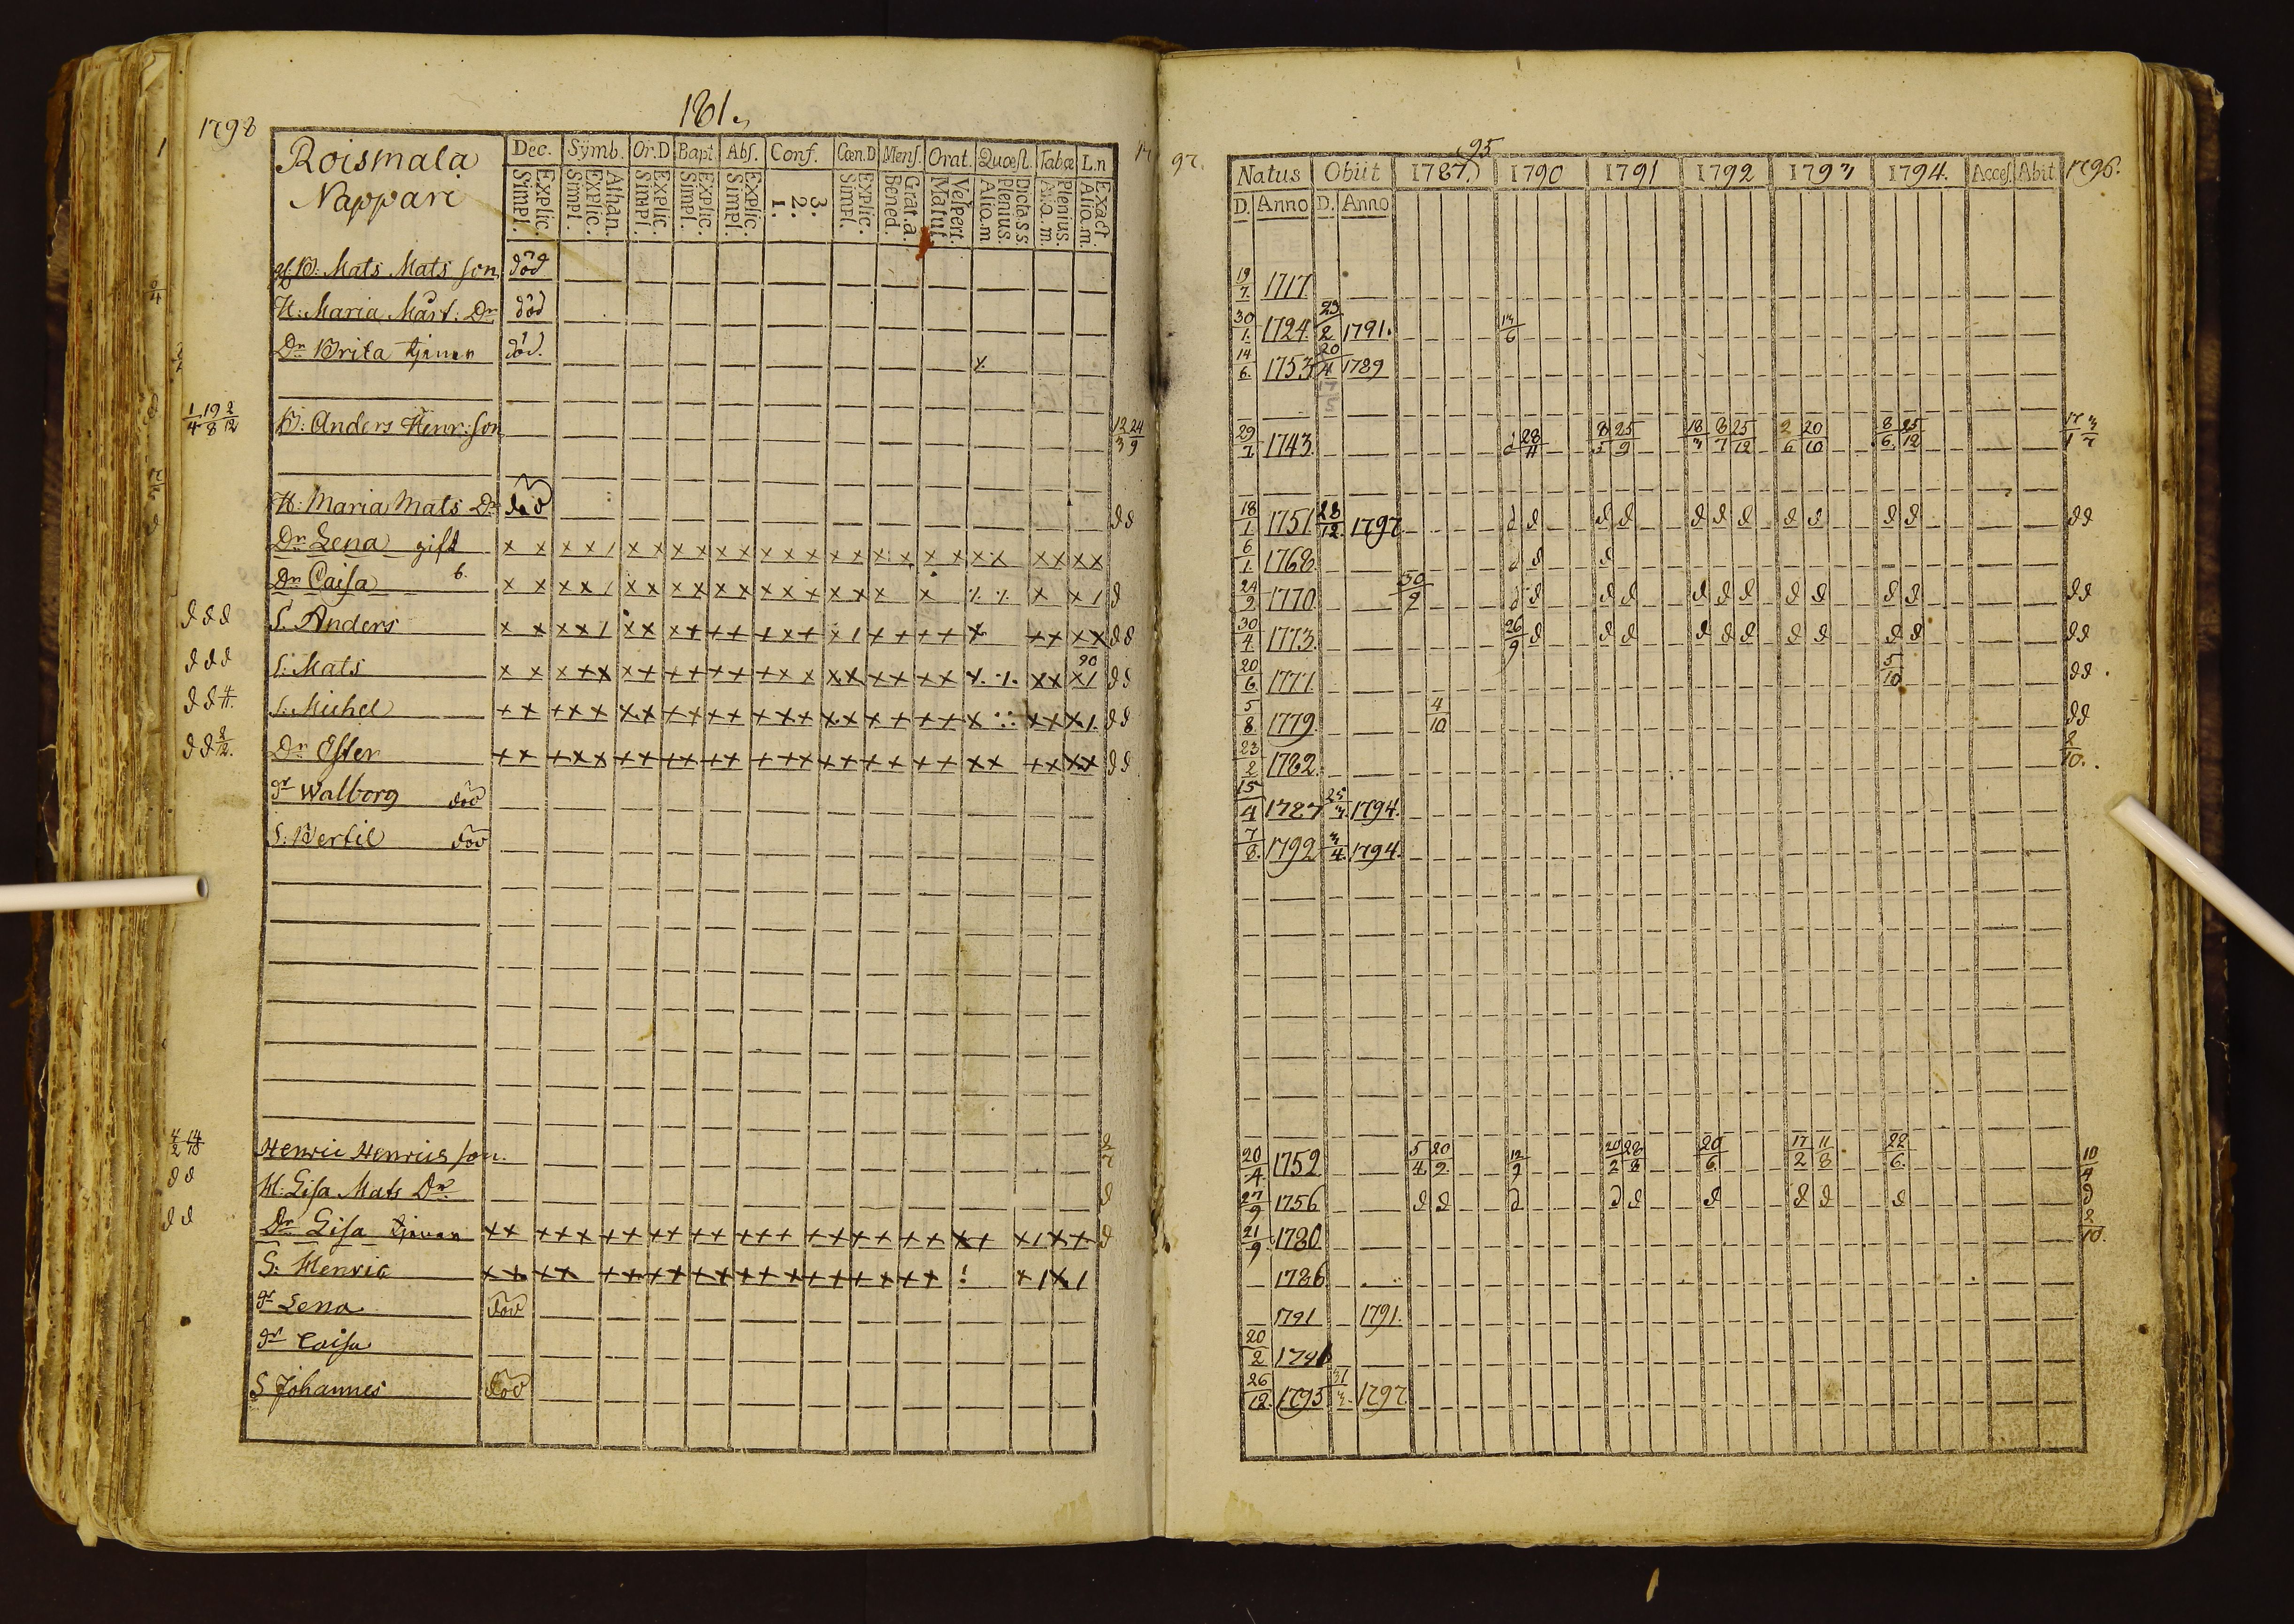 1798
181.
Roismala
Nappari
Dec. Symb. Or.D Bapt. Abs. Conf. Cœn.D Mens. Orat. Quœst. Tabœ L.n
Explic. Simpl. Athan. Explic. Simpl. Explic. Simpl. Explic. Simpl. Explic. Simpl. 3. 2. 1. Explic. Simpl. Grat.a. Bened. Vespert. Matut. Dicta s.s. Plenius. Alio.m. Plenius. Alio.m. Exact. Alio.m.
B: Mats Mats son död
H: Maria Mart: Dr död
Dr Brita tjenar död.
1/4 19/8 2/12 B: Anders Henr: son 12/3 24/9
H: Maria Mats Dr död d d
Dr Lena gift x x x x / x x x x x x x x x x x x x x x x x x x x x x
Dr Caisa 6. x x x x / x x x x x x x x x x x x x x x x / d
d d d S. Anders x x x x / x x x x x x x x x x / x x x x x x x x x d d
d d d S: Mats x x x x x x x x x x x x x x x x x x x x x x x 90 x / d d
d d 4. S. Michel x x x x x x x x x x x x x x x x x x x x x x x x / d d
d d 2/12. Dr Ester x x x x x x x x x x x x x x x x x x x x x x x x x x d d
dr Walborg död
S: Bertil död
4/2 14/10 Henric Henrics son. 2/7
d d H: Lisa Mats Dr d
d d Dr Lisa tjenar x x x x x x x x x x x x x x x x x x x x x x x / x x d
S: Henric x x x x x x x x x x x x x x x x x x x ! x / x /
dr Lena död
dr Caisa
S Johannes död
97.
95
Natus Obiit 1787. 1790 1791 1792 1793 1794. Acces. Abit 1796.
D. Anno D. Anno
19/7. 1717
30/1. 1724. 23/2 1791. 14/6
14/6. 1753 20/4 1789
29/7 1743. d 28/11 8/5 25/9 18/3 8/7 25/12 2/6 20/10 8/6. 25/12 17/1 3/7
18/1 1751 28/12. 1797 d d d d d d d d d d d d d
6/1. 1768. d d d
24/9 1770. 30/9 d d d d d d d d d d d d d
30/4. 1773. 26/9 d d d d d d d d d d d d
20/6. 1777. 5/10. d d.
5/8. 1779. 4/10 d d
23/2 1782. 2/10.
15/4 1787 25/3. 1794.
7/8. 1792 3/4. 1794.
20/4. 1759 5/4. 20/9. 12/7 20/2 28/8 20/6. 17/2 11/8 22/6. 10/4
27/9 1756 d d d d d d d d d d
21/9. 1780. 2/10.
1786
1791 1791.
20/2 1794
26/12. 1795 31/3. 1797